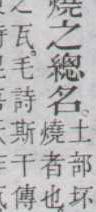 燒之總名。土部坏
燒者也
之瓦。毛詩斯干傳